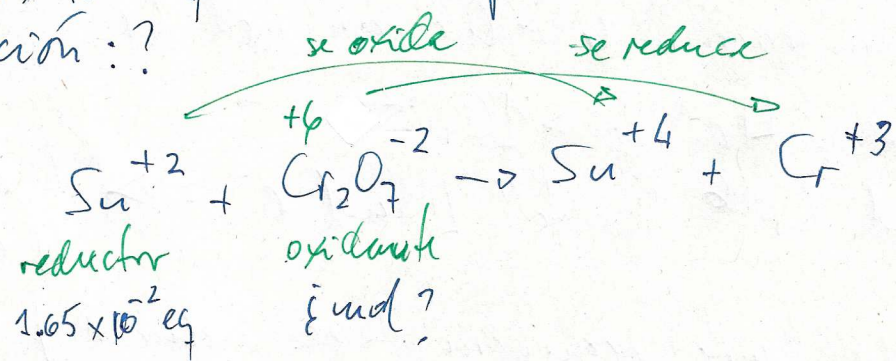 ción : ?
se oxida se reduce
+6
Sn⁺² + Cr₂O₇⁻² → Sn⁺⁴ + Cr⁺³
reductor oxidante
1.65 x 10⁻² eq ¿mol?